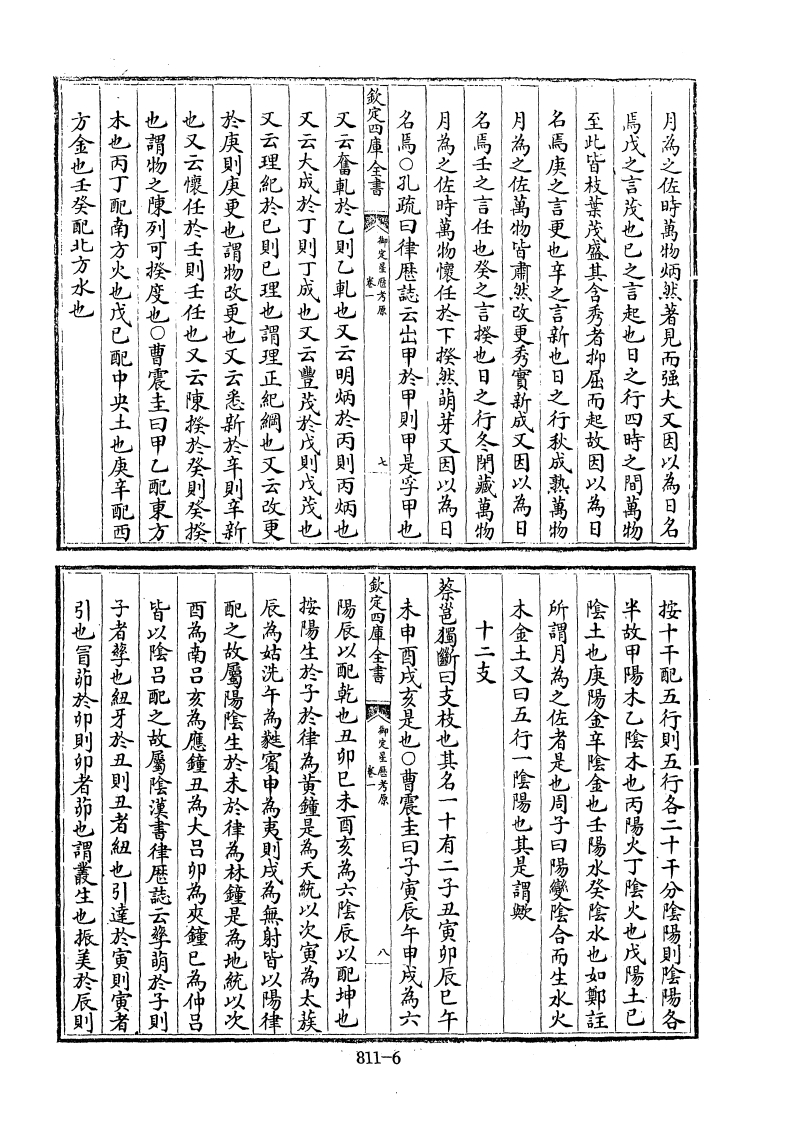 月為之佐時萬物炳然著見而强大又因以為日名
焉戊之言茂也已之言起也日之行四時之間萬物
至此皆枝葉茂盛其含秀者抑屈而起故因以為日
名焉庚之言更也辛之言新也日之行秋成熟萬物
月為之佐萬物皆肅然改更秀實新成又因以為日
名焉壬之言任也癸之言揆也日之行冬閉藏萬物
月為之佐時萬物懷任於下揆然萌芽又因以為日
名焉○孔疏曰律歴誌云出甲於甲則甲是孚甲也
欽定四庫全書
御定星歴考原
卷一
七
又云奮軋於乙則乙軋也又云明炳於丙則丙炳也
又云大成於丁則丁成也又云豐茂於戊則戊茂也
又云理紀於已則已理也謂理正紀綱也又云改更
於庚則庚更也謂物改更也又云悉新於辛則辛新
也又云懷任於壬則壬任也又云陳揆於癸則癸揆
也謂物之陳列可揆度也○曹震圭曰甲乙配東方
木也丙丁配南方火也戊已配中央土也庚辛配西
方金也壬癸配北方水也
按十干配五行則五行各二十干分陰陽則陰陽各
半故甲陽木乙陰木也丙陽火丁陰火也戊陽土已
陰土也庚陽金辛陰金也壬陽水癸陰水也如鄭註
所謂月為之佐者是也周子曰陽變陰合而生水火
木金土又曰五行一陰陽也其是謂歟
十二支
蔡邕獨斷曰支枝也其名一十有二子丑寅卯辰巳午
未申酉戌亥是也○曹震圭曰子寅辰午申戌為六
欽定四庫全書
御定星歴考原
卷一
八
陽辰以配乾也丑卯巳未酉亥為六陰辰以配坤也
按陽生於子於律為黃鐘是為天統以次寅為太蔟
辰為姑洗午為蕤賓申為夷則戌為無射皆以陽律
配之故屬陽陰生於未於律為林鐘是為地統以次
酉為南呂亥為應鐘丑為大呂卯為夾鐘巳為仲呂
皆以陰呂配之故屬陰漢書律歴誌云孳萌於子則
子者孳也紐牙於丑則丑者紐也引達於寅則寅者
引也冒茆於卯則卯者茆也謂叢生也振美於辰則
811-6